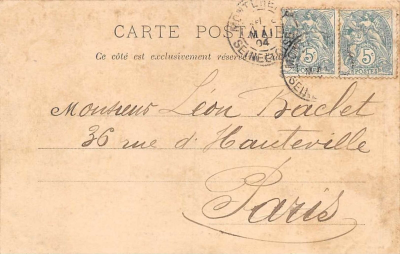 CARTE POSTALE
Ce côté est exclusivement réservé
MAI
04
SEINE ET
5
5
POSTES
Monsieur Léon Baclet
36 rue d'Hauteville
Paris